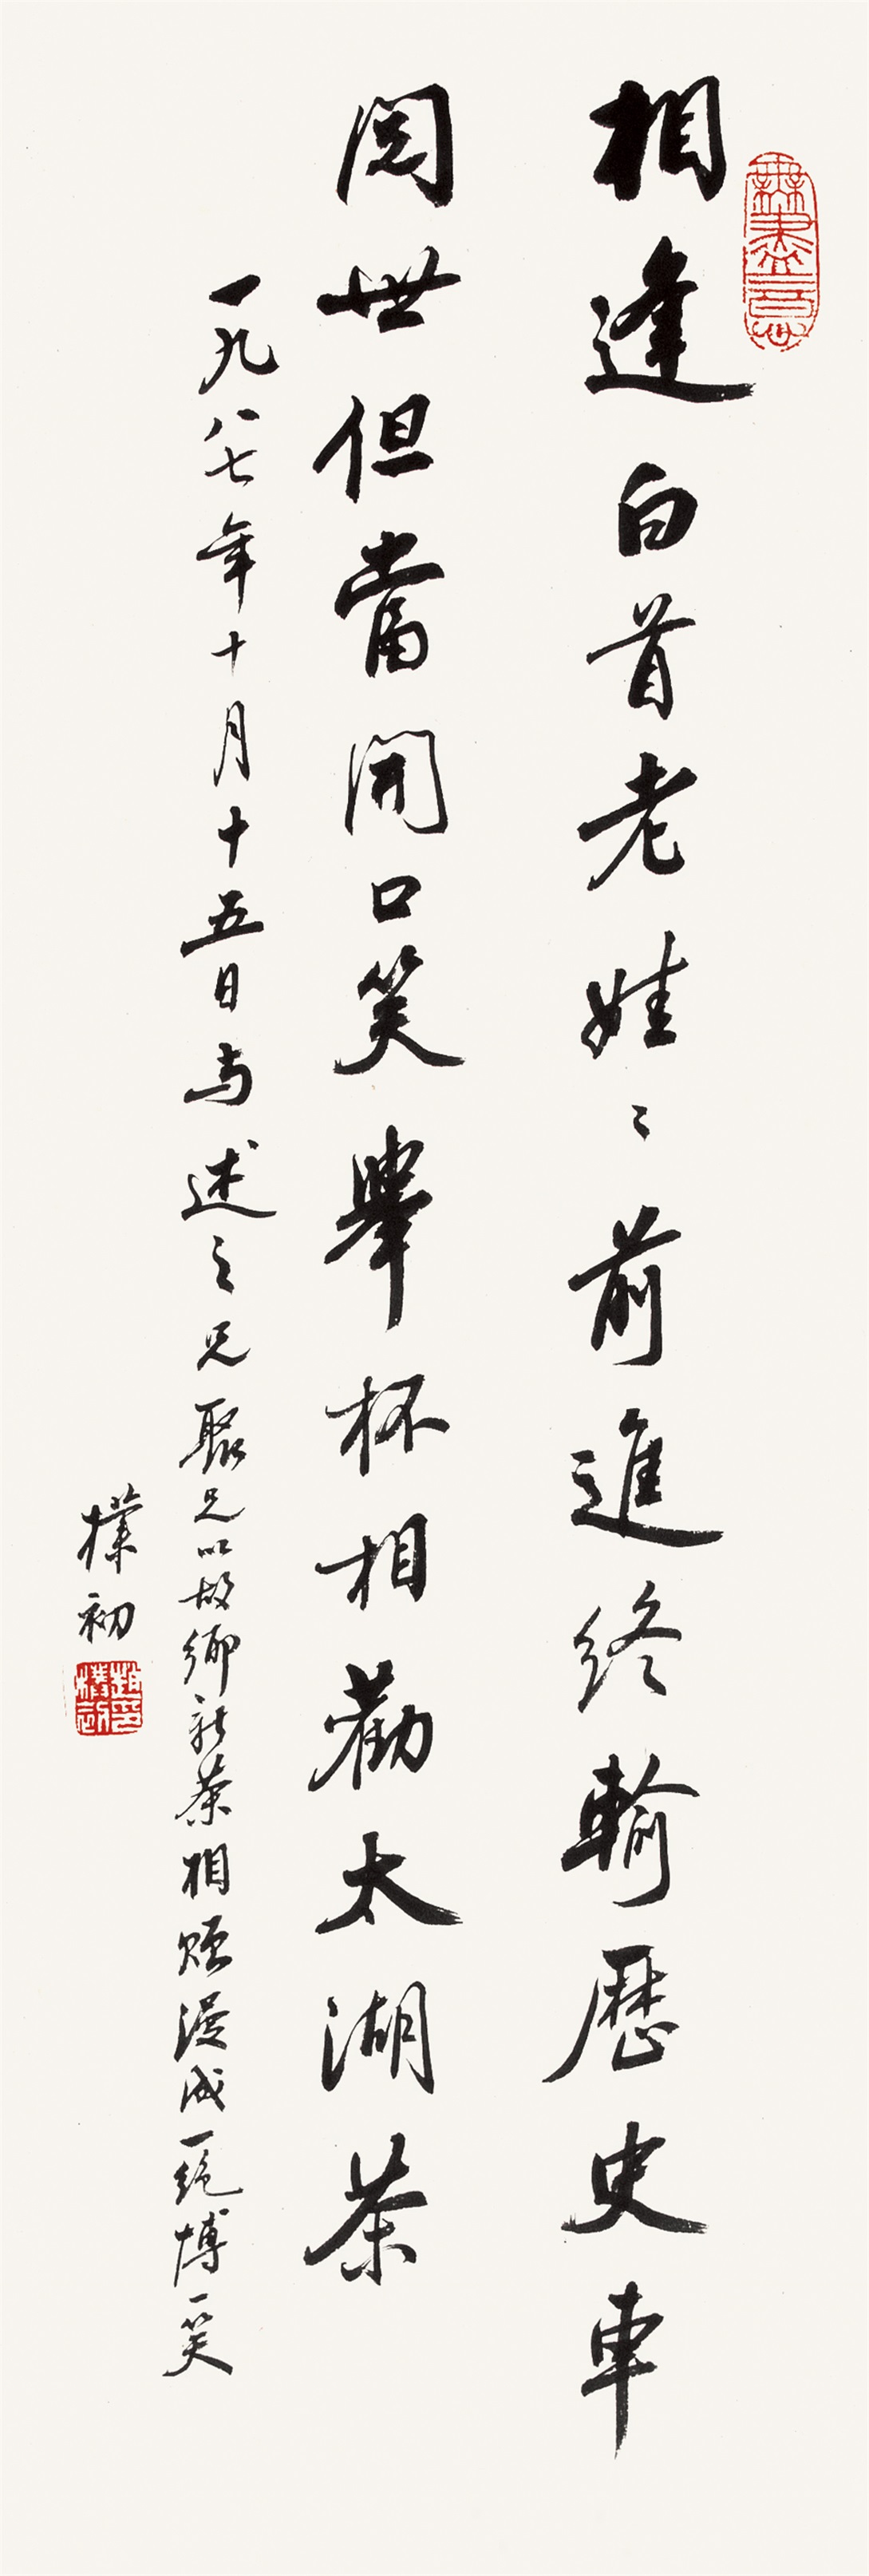 相逢白首老娃〻前進終輸歷史車
閱世但當開口笑舉杯相勸太湖茶
一九八七年十月十五日与述之兄聚兄以故鄉新茶相贈漫成一絕博一笑
樸初
無盡意
趙樸初印